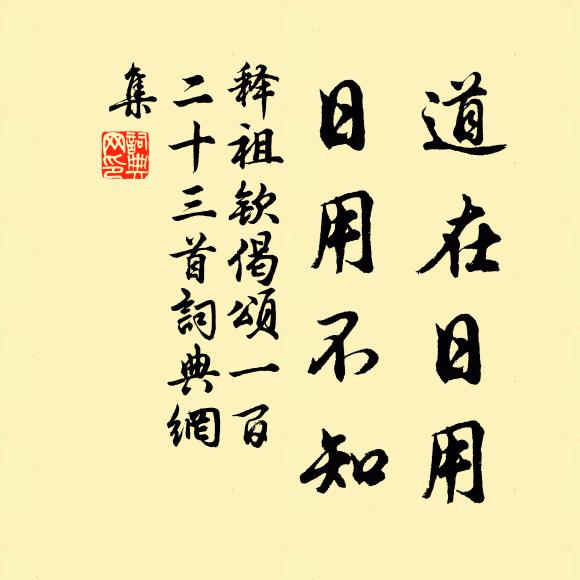 道在日用
日用不知
释祖钦偈頌一百
二十三首詞典網
集
詞典
网印